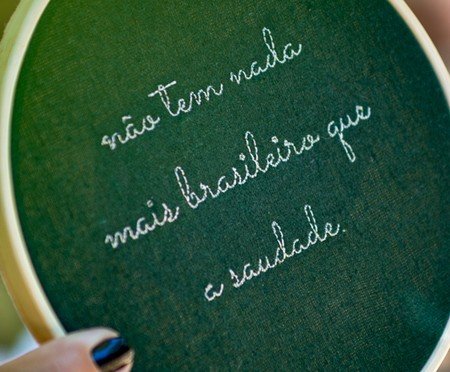 não tem nada
mais brasileiro que
a saudade.